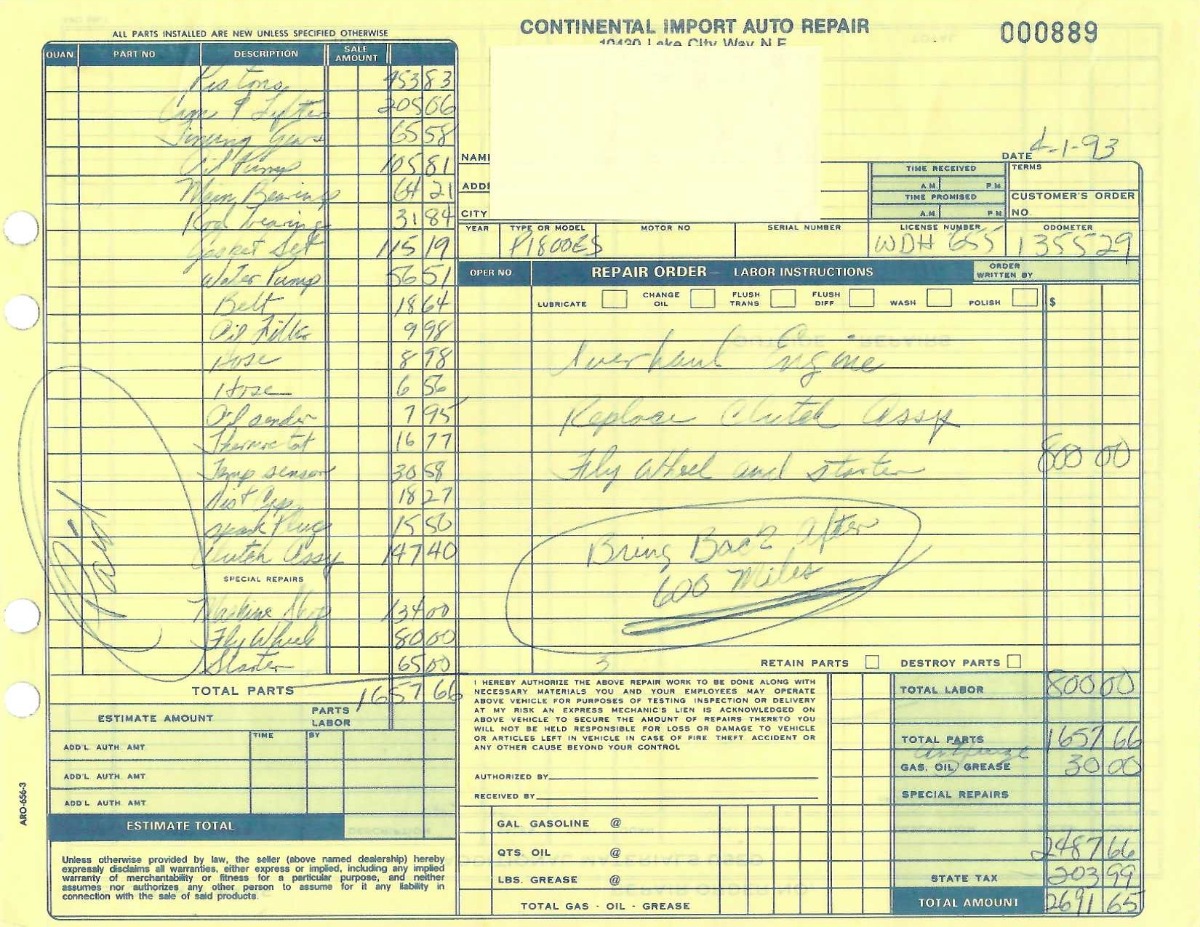 CONTINENTAL IMPORT AUTO REPAIR
10430 Lake City Way N.E.
000889
ALL PARTS INSTALLED ARE NEW UNLESS SPECIFIED OTHERWISE
QUAN. PART NO DESCRIPTION SALE AMOUNT
Pistons 453 83
Cam & Lifters 205 06
Timing Gears 65 58
Oil Pump 105 81
Main Bearings 64 21
Rod bearings 31 84
Gasket Set 115 19
Water Pump 56 51
Belt 18 64
Oil Filter 9 98
Hose 8 98
Hose 6 56
Oil sender 7 95
Thermostat 16 77
Temp sensor 30 58
Dist Cap 18 27
spark Plugs 15 50
Clutch Assy 147 40
SPECIAL REPAIRS
Machine Shop 134 00
Fly Wheel 80 00
Starter 65 00
Paid
TOTAL PARTS 1657 66
ESTIMATE AMOUNT PARTS LABOR
TIME BY
ADD'L AUTH. AMT
ADD'L AUTH. AMT
ADD'L AUTH. AMT
ESTIMATE TOTAL
ARO-656-3
Unless otherwise provided by law, the seller (above named dealership) hereby
expressly disclaims all warranties, either express or implied, including any implied
warranty of merchantability or fitness for a particular purpose, and neither
assumes nor authorizes any other person to assume for it any liability in
connection with the sale of said products.
NAME
ADD
CITY
DATE 4-1-93
TIME RECEIVED
A.M. P.M.
TIME PROMISED
A.M. P.M.
TERMS
CUSTOMER'S ORDER
NO.
YEAR TYPE OR MODEL MOTOR NO SERIAL NUMBER LICENSE NUMBER ODOMETER
P1800ES WDH 655 135529
OPER NO. REPAIR ORDER – LABOR INSTRUCTIONS ORDER WRITTEN BY
LUBRICATE CHANGE OIL FLUSH TRANS FLUSH DIFF WASH POLISH $
Overhaul Engine
Replace Clutch Assy
Fly Wheel and starter 800 00
Bring Back After
600 Miles
3
RETAIN PARTS DESTROY PARTS
I HEREBY AUTHORIZE THE ABOVE REPAIR WORK TO BE DONE ALONG WITH
NECESSARY MATERIALS YOU AND YOUR EMPLOYEES MAY OPERATE
ABOVE VEHICLE FOR PURPOSES OF TESTING INSPECTION OR DELIVERY
AT MY RISK AN EXPRESS MECHANIC'S LIEN IS ACKNOWLEDGED ON
ABOVE VEHICLE TO SECURE THE AMOUNT OF REPAIRS THERETO YOU
WILL NOT BE HELD RESPONSIBLE FOR LOSS OR DAMAGE TO VEHICLE
OR ARTICLES LEFT IN VEHICLE IN CASE OF FIRE THEFT ACCIDENT OR
ANY OTHER CAUSE BEYOND YOUR CONTROL
AUTHORIZED BY
RECEIVED BY
GAL. GASOLINE @
QTS. OIL @
LBS. GREASE @
TOTAL GAS - OIL - GREASE
TOTAL LABOR 800 00
TOTAL PARTS 1657 66
Antifreeze
GAS, OIL, GREASE 30 00
SPECIAL REPAIRS
2487 66
STATE TAX 203 99
TOTAL AMOUNT 2691 65